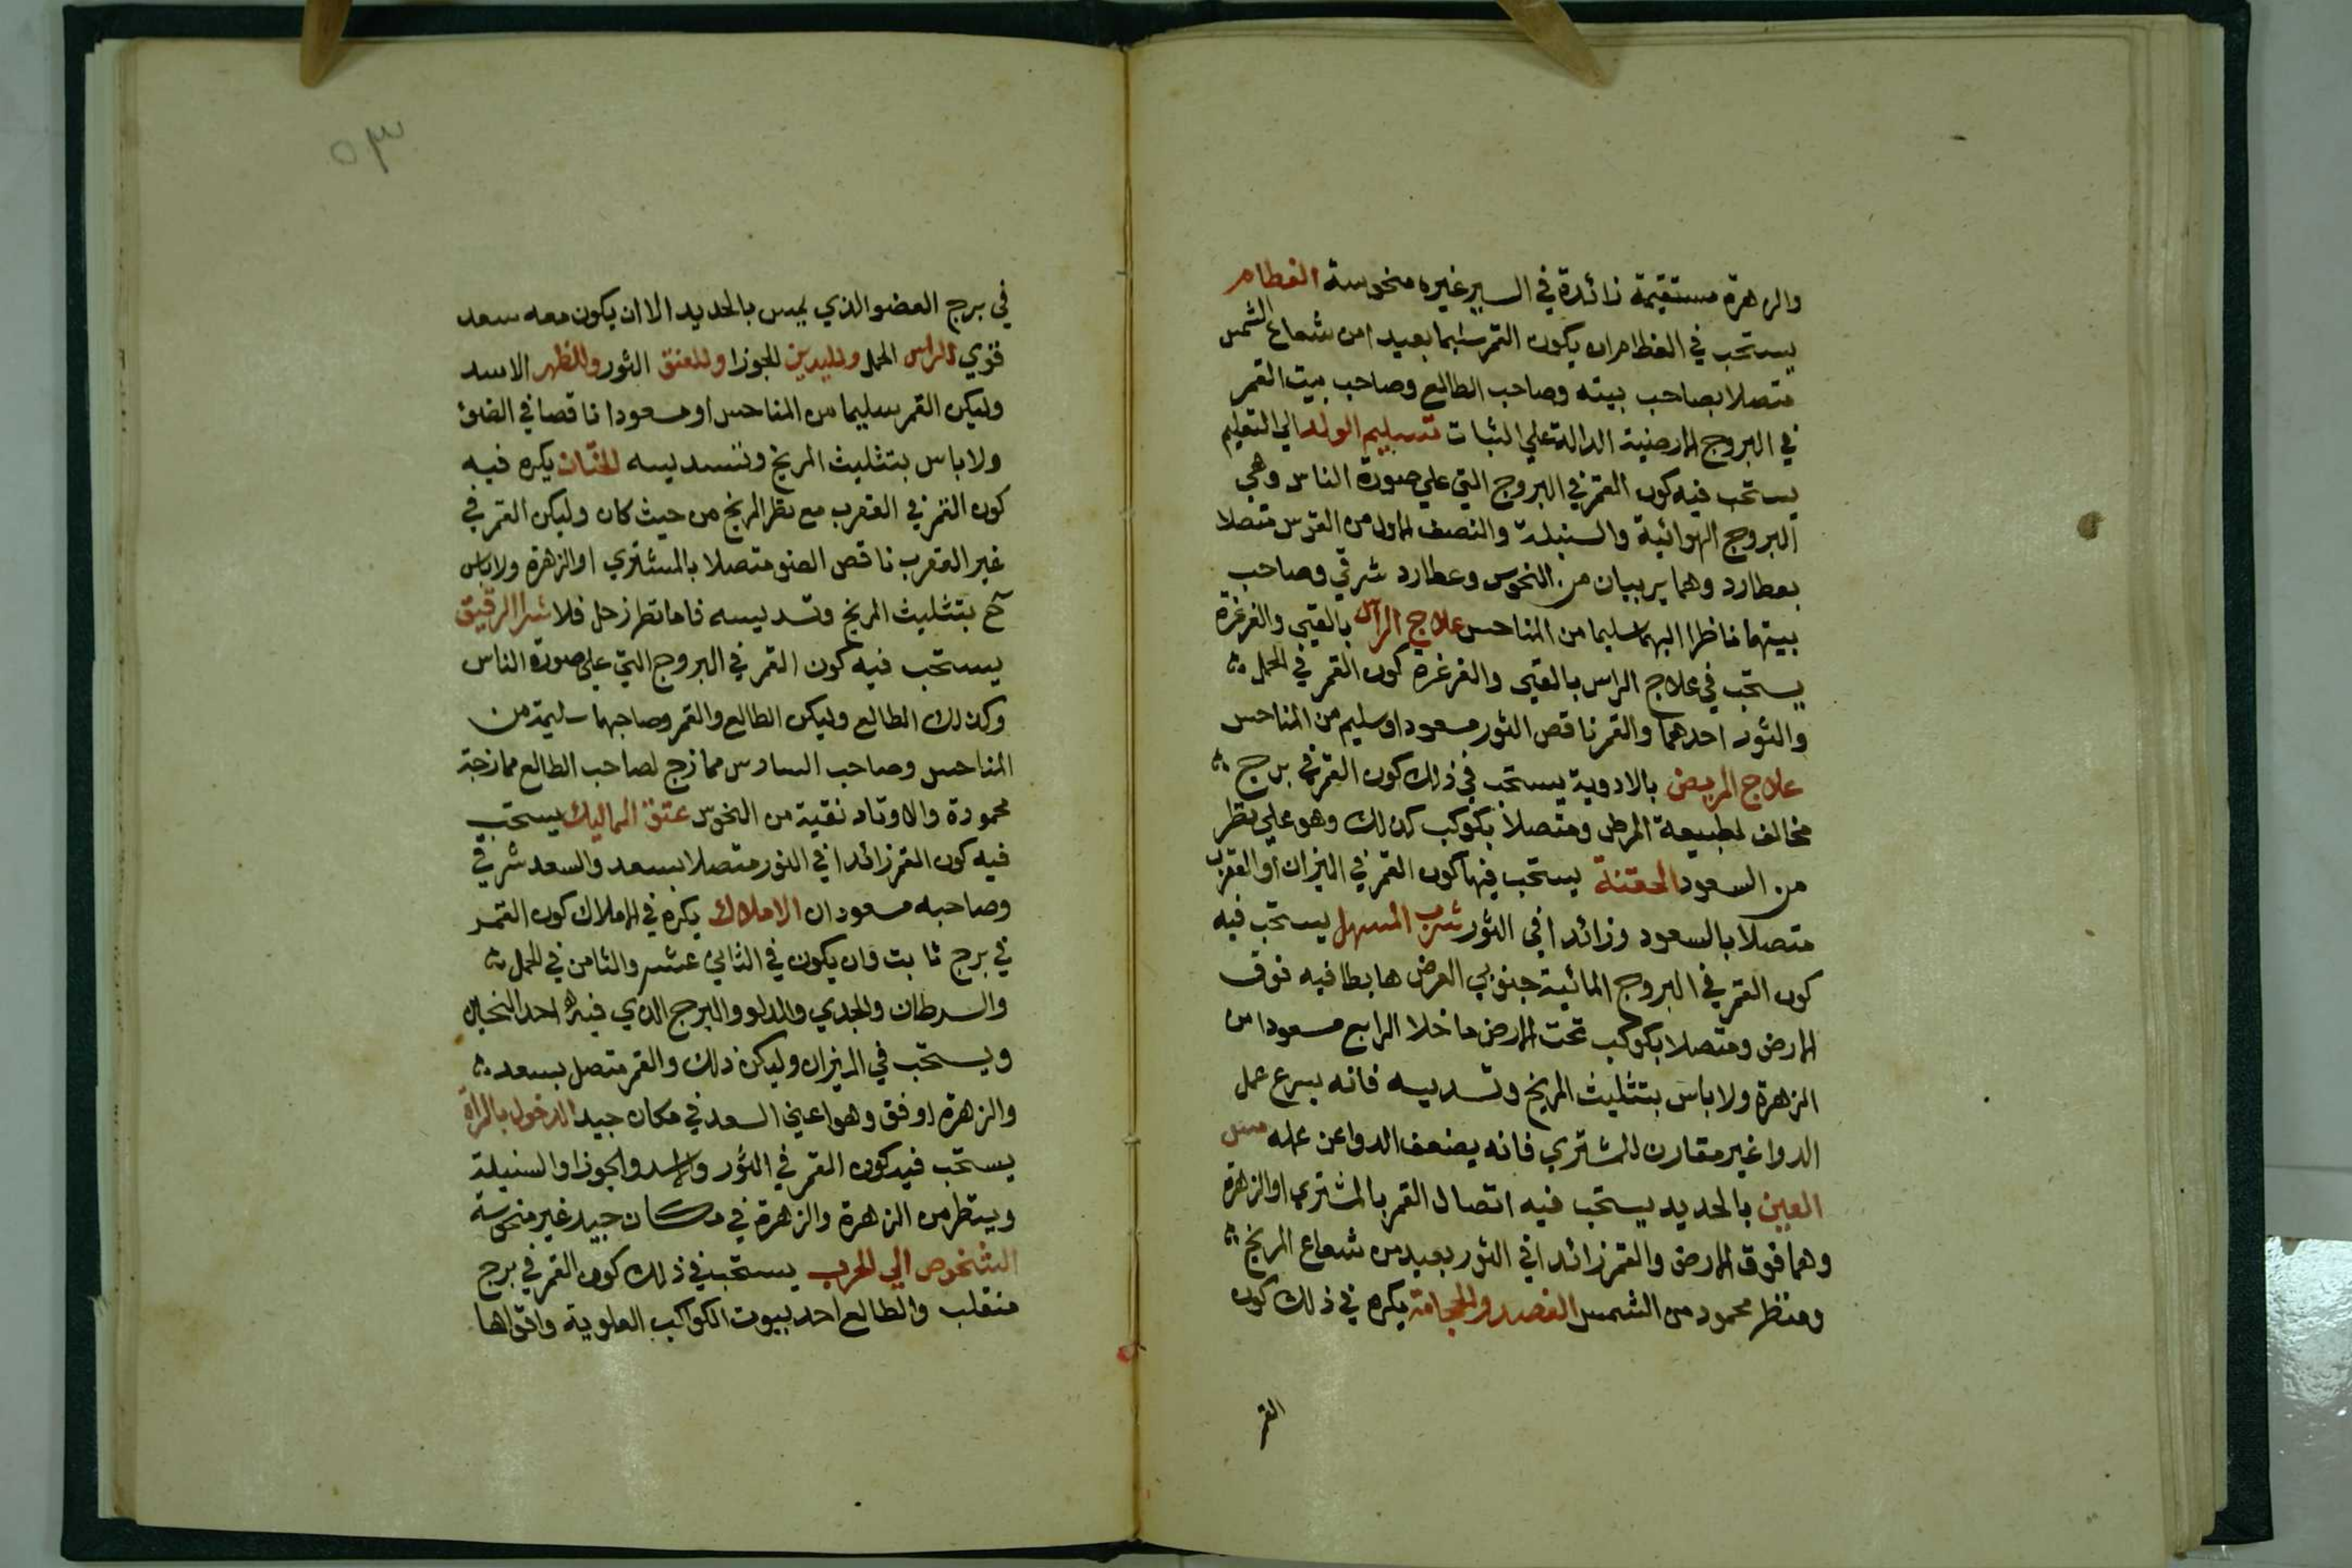 والزهرة مستقيمة زائدة في السير غيره منحوسة الفطام
يستحب في الفطام ان يكون القمر سليما بعيدا من شعاع الشمس
متصلا بصاحب بيته وصاحب الطالع وصاحب بيت القمر
في البروج الارضية الدالة علي الثبات تسليم الولد الي التعليم
يستحب فيه كون القمر في البروج التي علي صورة الناس وهي
البروج الهوائية والسنبلة والنصف الاول من القوس متصلا
بعطارد وهما بريبان من النحوس وعطارد شرقي وصاحب
بيتهما ناظرا اليهما سليما من المناحس علاج الراس بالقيي والغرغرة
يستحب في علاج الراس بالقيي والغرغرة كون القمر في الحمل
والثور احدهما والقمر ناقص النور مسعودا وسليم من المناحس
علاج المريض بالادوية يستحب في ذلك كون القمر في برج
مخالف لطبيعة المرض ومتصلا بكوكب كذلك وهو علي نظر
من السعود الحقنة يستحب فيها كون القمر في الميزان او العقرب
متصلا بالسعود وزائدا في النور شرب المسهل يستحب فيه
كون القمر في البروج المائية جنوبي العرض هابطا فيه فوق
الارض ومتصلا بكوكب تحت الارض ما خلا الرابع مسعودا من
الزهرة ولا باس بتثليث المريخ وتسديسه فانه يسرع عمل
الدوا غير مقارن للمشتري فانه يضعف الدوا عن عمله مس
العين بالحديد يستحب فيه اتصال القمر بالمشتري او الزهرة
وهما فوق الارض والقمر زائدا في النور بعيد من شعاع المريخ
ومنظر محمود من الشمس الفصد والحجامة يكره في ذلك كون
القمر
٥٣
في برج العضو الذي يمس بالحديد الا ان يكون معه سعد
قوي للراس الحمل ولليدين الجوزا وللعنق الثور وللظهر الاسد
وليكن القمر سليما من المناحس او مسعودا ناقصا في الضوئ
ولا باس بتثليث المريخ وتسديسه الختان يكره فيه
كون القمر في العقرب مع نظر المريخ من حيث كان وليكن القمر في
غير العقرب ناقص الضو متصلا بالمشتري او الزهرة ولا باس
ح بتثليث المريخ وتسديسه فاما نظر زحل فلا شرا الرقيق
يستحب فيه كون القمر في البروج التي علي صورة الناس
وكذلك الطالع وليكن الطالع والقمر وصاحبهما سليمة من
المناحس وصاحب السادس ممازج لصاحب الطالع ممازجة
محمودة والاوتاد نقية من النحوس عتق المماليك يستحب
فيه كون القمر زائدا في النور متصلا بسعد والسعد شرقي
وصاحبه مسعودان الاملاك يكره في الاملاك كون القمر
في برج ثابت وان يكون في الثاني عشر والثامن في الحمل
والسرطان والجدي والدلو والبرج الذي فيه احد النحسين
ويستحب في الميزان وليكن ذلك والقمر متصل بسعد
والزهرة اوفق وهو اعني السعد في مكان جيد الدخول بالمراة
يستحب فيه كون القمر في الثور والاسد والجوزا والسنبلة
وينظر من الزهرة والزهرة في مكان جيد غير منحوسة
الشخوص الي الحرب يستحب في ذلك كون القمر في برج
منقلب والطالع احد بيوت الكواكب العلوية واقواها